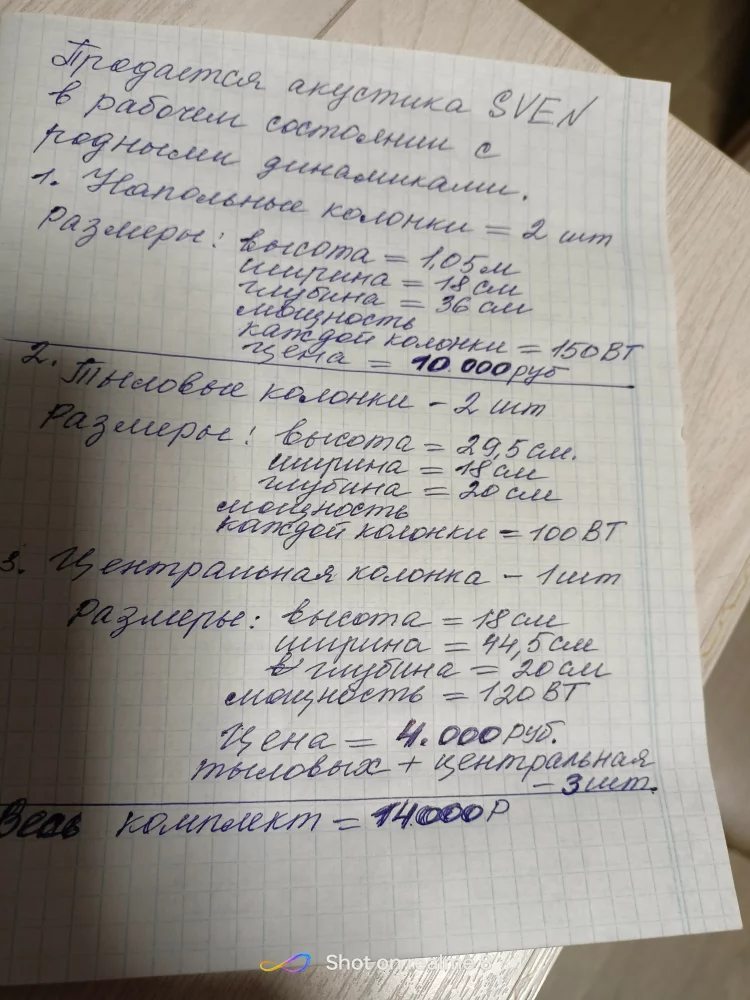 Продается акустика SVEN
в рабочем состоянии с
родными динамиками.
1. Напольные колонки = 2 шт
Размеры: высота = 1,05 м
ширина = 18 см
глубина = 36 см
мощность
каждой колонки = 150 ВТ
цена = 10.000 руб
2. Тыловые колонки - 2 шт
Размеры: высота = 29,5 см.
ширина = 18 см
глубина = 20 см
мощность
каждой колонки - 100 ВТ
3. Центральная колонка - 1 шт
Размеры: высота = 18 см
ширина = 44,5 см
глубина = 20 см
мощность = 120 ВТ
Цена = 4.000 руб.
тыловых + центральная
- 3 шт.
Весь комплект = 14000 Р
Shot on realme